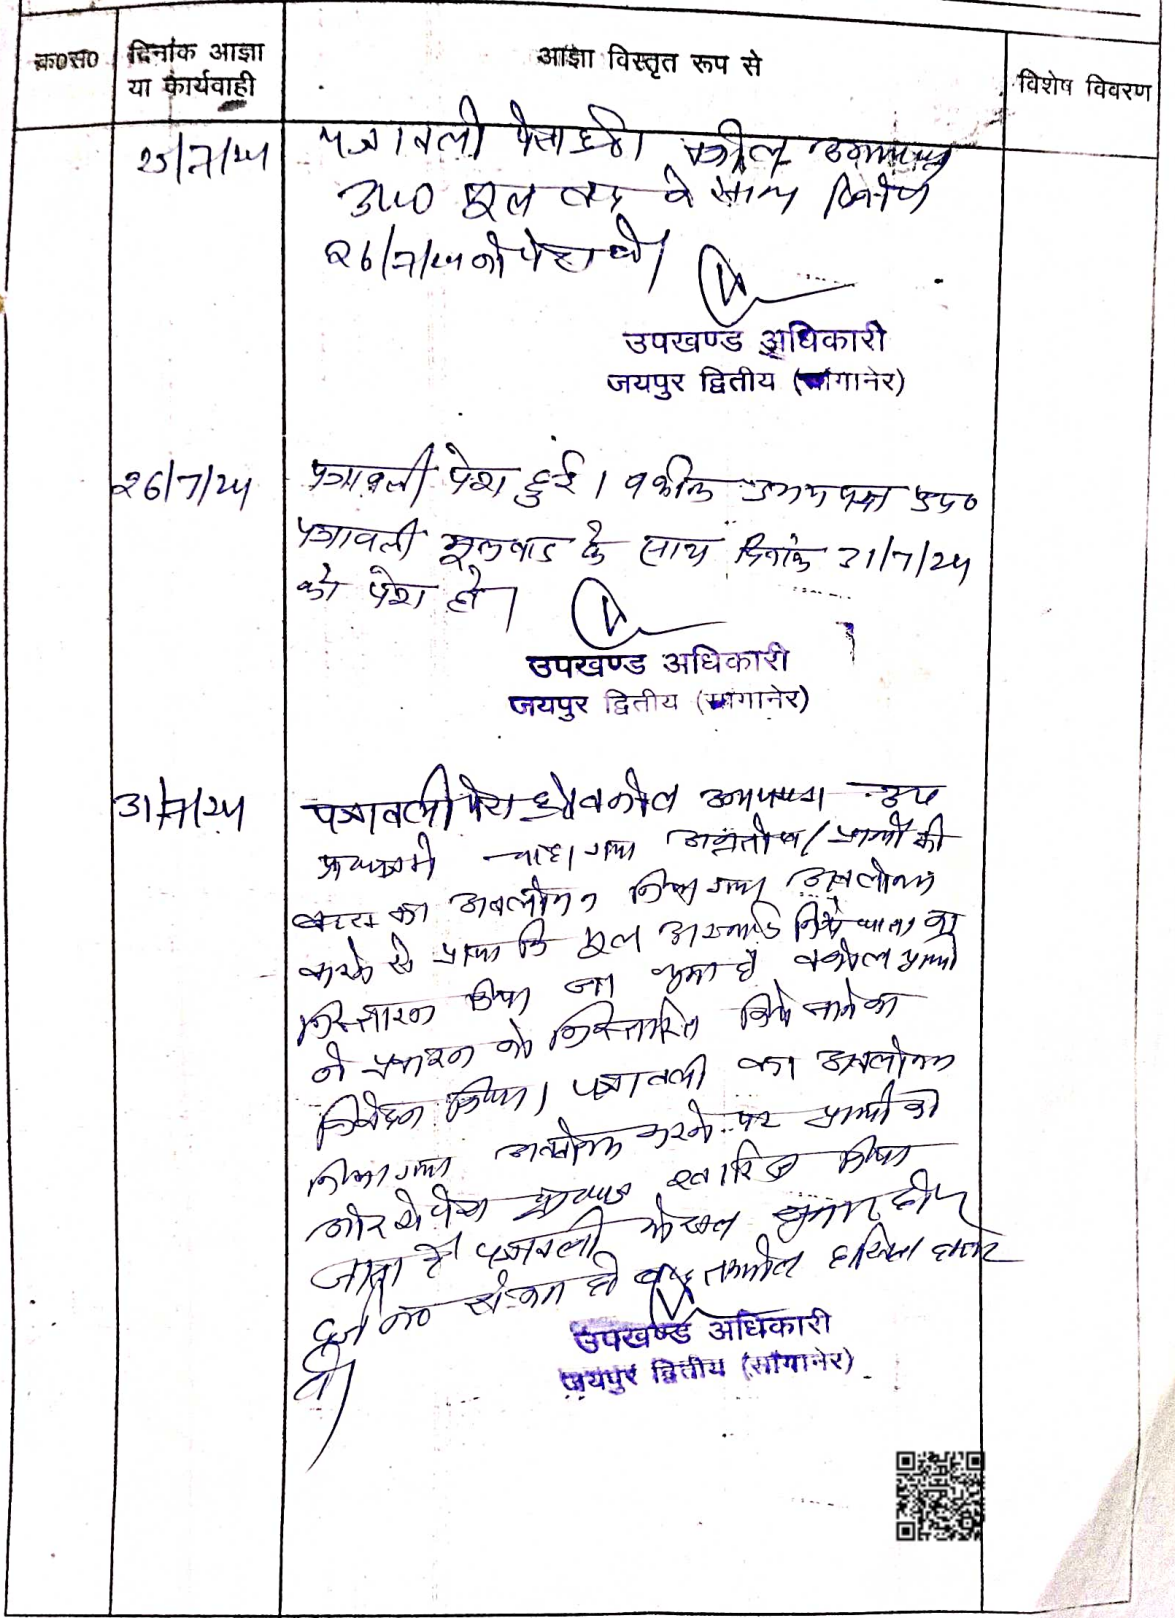 क०स०
दिनांक आज्ञा
या कार्यवाही
आज्ञा विस्तृत रूप से
विशेष विवरण
25/7/24 पत्रावली पेश हुई। वकील उभयपक्ष
उप0 मूल वाद के साथ दिनांक
26/7/24 को पेश हो।
उपखण्ड अधिकारी
जयपुर द्वितीय (सांगानेर)
26/7/24 पत्रावली पेश हुई। वकील उभय पक्ष उप०
पत्रावली मूलवाद के साथ दिनांक 31/7/24
को पेश हो।
उपखण्ड अधिकारी
जयपुर द्वितीय (सांगानेर)
31/7/24 पत्रावली पेश हुई। वकील उभयपक्ष। उप
चाहा गया प्रार्थी की
बहस का अवलोकन किया गया अवलोकन
करने से पाया कि मूल का
निस्तारण किया जा चुका है वकील प्रार्थी
ने प्रकरण को निस्तारित किये जाने का
निवेदन किया। पत्रावली का अवलोकन
किया गया अवलोकन करने पर प्रार्थी की
ओर से पेश खारिज किया
जाता है पत्रावली फैसल शुमार होकर
नं० से कम हो बाद तकमील दाखिल दफ्तर
हो।
उपखण्ड अधिकारी
जयपुर द्वितीय (सांगानेर)